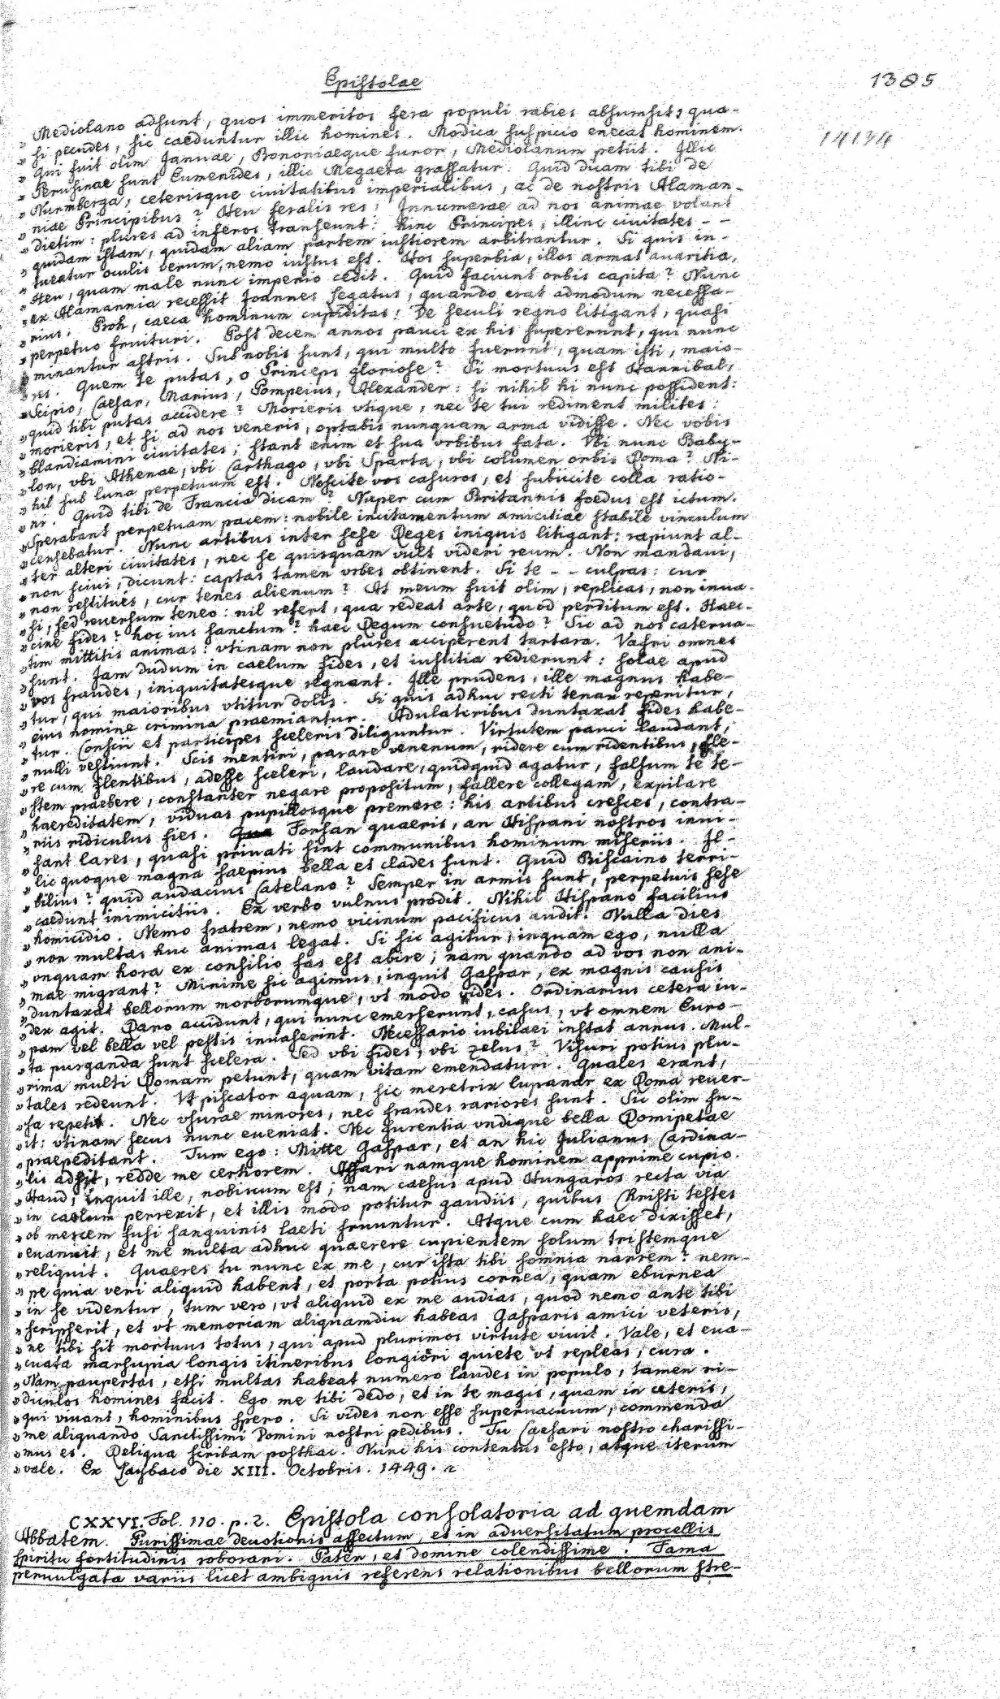 Epistolae
1385
14134
Mediolano adsunt, quos immeritos fera populi rabies absumsit, qua-
» si pecudes, sic caeduntur illic homines. Modica suspicio enecat hominem.
» Qui fuit olim Januae, Bononiaeque furor, Mediolanum petiit. Illic
» Perusinae sunt Eumenides, illic Megaera grassatur. Quid dicam tibi de
» Nurmberga, ceterisque ciuitatibus imperialibus, ac de nostris Alaman-
» niae Principibus? Heu feralis res! Innumerae ad nos animae volant
» dietim: plures ad inferos transeunt: hinc Principes, illinc ciuitates - -
» quidam istam, quidam aliam partem iustiorem arbitrantur. Si quis in-
» tueatur oculis verum, nemo iustus est. Hos superbia, illos armat auaritia,
» Heu, quam male nunc imperio cedit. Quid faciunt orbis capita? Nunc
» ex Alamannia recessit Joannes legatus, quando erat admodum necessa-
» rius. Proh, caeca hominum cupiditas! De seculi regno litigant, quasi
» perpetuo fruituri. Post decem annos pauci ex his supererunt, qui nunc
» minantur astris. Sub nobis sunt, qui multo fuerunt, quam isti, maio-
» res. Quem te putas, o Princeps gloriose? Si mortuus est Hannibal,
» Scipio, Caesar, Marius, Pompeius, Alexander: si nihil hi nunc possident:
» quid tibi putas accidere? Morieris vtique, nec te tui rediment milites:
» morieris, et si ad nos veneris, optabis nunquam arma vidisse. Nec vobis
» blandiamini ciuitates; stant enim et sua vrbibus fata. Vbi nunc Baby-
» lon, vbi Athenae, vbi Carthago, vbi Sparta, vbi columen orbis Roma? Ni-
» hil sub luna perpetuum est. Noscite vos casuros, et subiicite colla ratio-
» ni. Quid tibi de Francia dicam? Nuper cum Britannis foedus est ictum.
» Sperabant perpetuam pacem: nobile incitamentum amicitiae stabile vinculum
» censebatur. Nunc artibus inter sese Reges iniquis litigant: rapiunt al-
» ter alteri ciuitates, nec se quisquam vult videri reum. Non mandaui,
» non sciui, dicunt: captas tamen vrbes obtinent. Si te - - culpas: cur
» non restitues, cur tenes alienum? At meum fuit olim, replicas, non inua-
» si, sed reuersum teneo: nil refert, qua redeat arte, quod perditum est. Haec-
» cine fides? hoc ius sanctum? haec Regum consuetudo? Sic ad nos caterua-
» tim mittitis animas: vtinam non plures acciperent tartara. Vafri omnes
» sunt. Jam dudum in caelum fides, et iustitia redierunt: solae apud
» vos fraudes, iniquitatesque regnant. Ille prudens, ille magnus habe-
» tur, qui maioribus vtitur dolis. Si quis adhuc recti tenax reperitur,
» eius nomine crimina praemiantur. Adulatoribus duntaxat fides habe-
» tur. Conscii et participes sceleris diliguntur. Virtutem pauci laudant,
» nulli vestiunt. Scis mentiri, parare venenum, ridere cum ridentibus, fle-
» re cum flentibus, adesse sceleri, laudare, quidquid agatur, falsum te te-
» stem praebere, constanter negare propositum, fallere collegam, expilare
» haereditatem, viduas pupillosque premere: his artibus cresces, contra-
» riis ridiculus fies. Forsan quaeris, an Hispani nostros inui-
» sant lares, quasi priuati sint communibus hominum miseriis. Il-
» lic quoque magna saepius bella et clades sunt. Quid Biscaino terri-
» bilius? quid audacius Catelano? Semper in armis sunt, perpetuis sese
» caedunt inimicitiis. Ex verbo vulnus prodit. Nihil Hispano facilius
» homicidio. Nemo fratrem, nemo vicinum pacificus audit. Nulla dies
» non multas huc animas legat. Si sic agitur, inquam ego, nulla
» vnquam hora ex consilio fas est abire; nam quando ad vos non ani-
» mae migrant? Minime sic agimus, inquit Gaspar, ex magnis causis
» duntaxat bellorum morborumque, vt modo vides. Ordinarius cetera iu-
» dex agit. Raro accidunt, qui nunc emerserunt, casus, vt omnem Euro-
» pam vel bella vel pestis inuaserint. Necessario iubilaei instat annus. Mul-
» ta purganda sunt scelera. Sed vbi fides, vbi zelus? Visuri potius plu-
» rima multi Romam petunt, quam vitam emendaturi. Quales erant,
» tales redeunt. Vt piscator aquam, sic meretrix lupanar ex Roma reuer-
» sa repetit. Nec vsurae minores, nec fraudes rariores sunt. Sic olim fu-
» it: vtinam secus nunc eueniat. Nec furentia vndique bella Romipetae
» praepeditant. Tum ego: Mitte Gaspar, et an hic Julianus Cardina-
» lis adsit, redde me certiorem. Affari namque hominem apprime cupio.
» Haud, inquit ille, nobiscum est; nam caesus apud Hungaros recta via
» in caelum perrexit, et illis modo potitur gaudiis, quibus Christi testes
» ob mercem fusi sanguinis laeti fruuntur. Atque cum haec dixisset,
» euanuit, et me multa adhuc quaerere cupientem solum tristemque
» reliquit. Quaeres tu nunc ex me, cur ista tibi somnia narrem? nem-
» pe quia veri aliquid habent, et porta potius cornea, quam eburnea
» in se videntur, tum vero, vt aliquid ex me audias, quod nemo ante tibi
» scripserit, et vt memoriam aliquamdiu habeas Gasparis amici veteris,
» ne tibi sit mortuus totus, qui apud plurimos virtute viuit. Vale, et eua-
» cuata marsupia longis itineribus longiori quiete vt repleas, cura.
» Nam paupertas, etsi multas habeat numero laudes in populo, tamen ri-
» diculos homines facit. Ego me tibi dedo, et in te magis, quam in ceteris,
» qui viuant, hominibus spero. Si vides non esse superuacuum, commenda
» me aliquando Sanctissimi Domini nostri pedibus. Tu Caesari nostro charissi-
» mus es. Reliqua scribam posthac. Nunc his contentus esto, atque iterum
» vale. Ex Laybaco die XIII. Octobris. 1449.
CXXVI. Fol. 110. p. 2. Epistola consolatoria ad quemdam
Abbatem. Purissimae deuotionis affectum, et in aduersitatum procellis
spiritu fortitudinis roborari. Pater, et domine colendissime. Fama
peruulgata variis licet ambiguis referens relationibus bellorum stre-